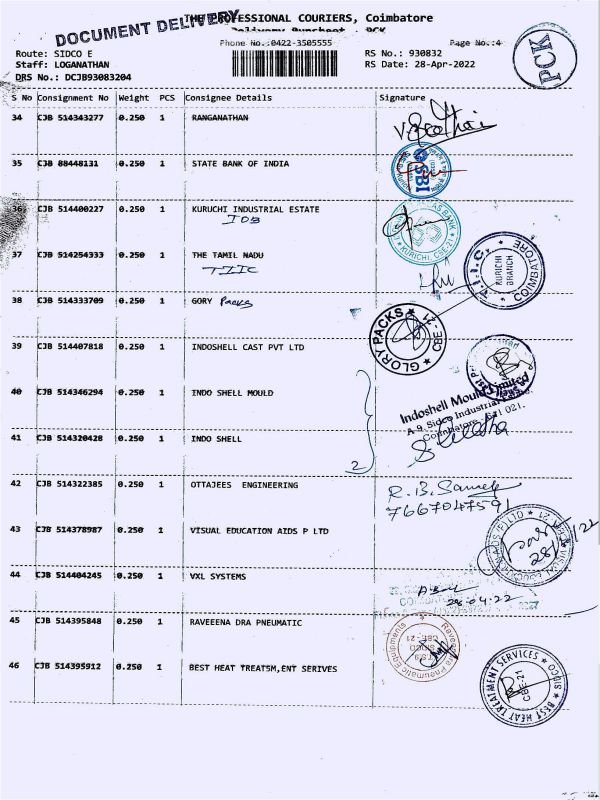 DOCUMENT DELIVERY
THE PROFESSIONAL COURIERS, Coimbatore
Delivery Runsheet - PCK
Phone No.:0422-3505555 Page No.:4
PCK
Route: SIDCO E RS No.: 930832
Staff: LOGANATHAN RS Date: 28-Apr-2022
DRS No.: DCJB93083204
S No Consignment No Weight PCS Consignee Details Signature
34 CJB 514343277 0.250 1 RANGANATHAN
35 CJB 88448131 0.250 1 STATE BANK OF INDIA
SBI
36 CJB 514400227 0.250 1 KURUCHI INDUSTRIAL ESTATE
IOB
KURICHI, CBE-21
37 CJB 514254333 0.250 1 THE TAMIL NADU
TIIC
T.I.I.C. KURICHI BRANCH COIMBATORE
38 CJB 514333709 0.250 1 GORY Packs
GLORY PACKS CBE-21
39 CJB 514407818 0.250 1 INDOSHELL CAST PVT LTD
40 CJB 514346294 0.250 1 INDO SHELL MOULD
Indoshell Mould Limited
A-9, Sidco Industrial
Coimbatore - 641 021.
41 CJB 514320428 0.250 1 INDO SHELL
2
42 CJB 514322385 0.250 1 OTTAJEES ENGINEERING
R.B.
7667047591
43 CJB 514378987 0.250 1 VISUAL EDUCATION AIDS P LTD
44 CJB 514404245 0.250 1 VXL SYSTEMS
28.04.22
45 CJB 514395848 0.250 1 RAVEEENA DRA PNEUMATIC
Raveendra Pneumatic Equipments SIDCO CBE-21
46 CJB 514395912 0.250 1 BEST HEAT TREAT5M,ENT SERIVES
BEST HEAT TREATMENT SERVICES SIDCO CBE-21